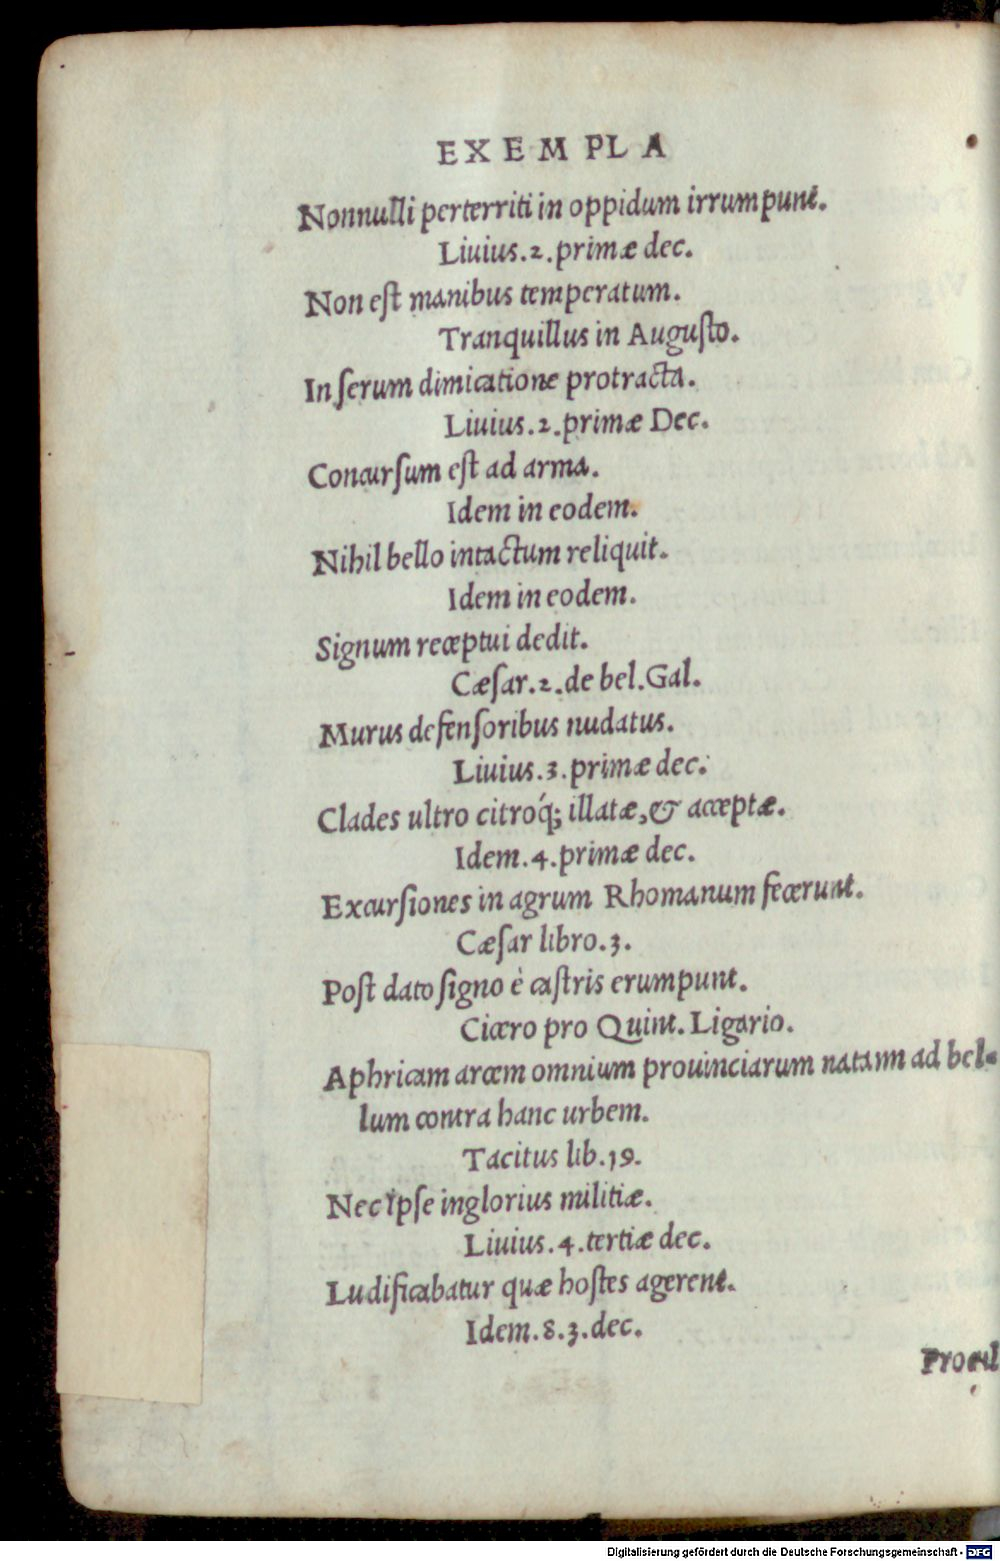 EXEMPLA
Nonnulli perterriti in oppidum irrumpunt.
Liuius.2.primæ dec.
Non eſt manibus temperatum.
Tranquillus in Auguſto.
In ſerum dimicatione protracta.
Liuius.2.primæ Dec.
Concurſum eſt ad arma.
Idem in eodem.
Nihil bello intactum reliquit.
Idem in eodem.
Signum receptui dedit.
Cæſar.2.de bel.Gal.
Murus defenſoribus nudatus.
Liuius.3.primæ dec.
Clades ultro citróq; illatæ,& acceptæ.
Idem.4.primæ dec.
Excurſiones in agrum Rhomanum fecerunt.
Cæſar libro.3.
Poſt dato ſigno è caſtris erumpunt.
Cicero pro Quint. Ligario.
Aphricam arcem omnium prouinciarum natam ad bel-
lum contra hanc urbem.
Tacitus lib.19.
Nec ipſe inglorius militiæ.
Liuius.4.tertiæ dec.
Ludificabatur quæ hoſtes agerent.
Idem.8.3.dec.
Digitalisierung gefördert durch die Deutsche Forschungsgemeinschaft - DFG